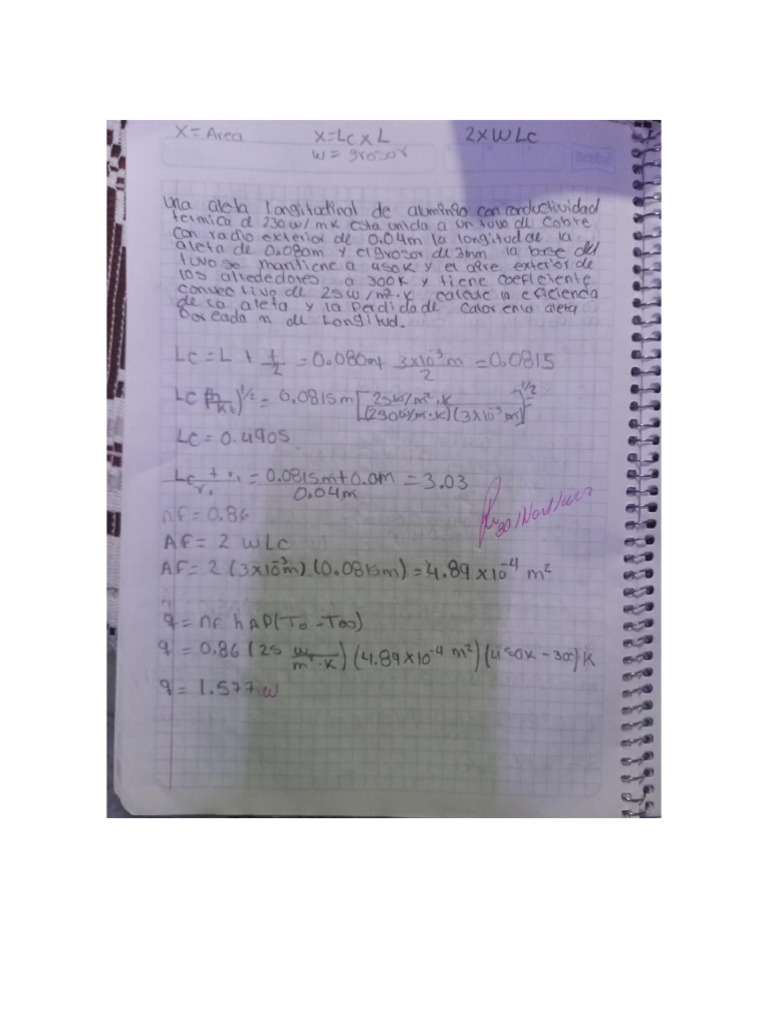 X = Area X=Lc x L 2xWLc
w = grosor
Scribe
Una aleta longitudinal de aluminio con conductividad
termica d 230 w/mk esta unida a un tuvo de cobre
con radio exterior de 0.04m la longitud de la
aleta de 0.080m y el grosor de 3mm la base del
tuvo se mantiene a 450K y el aire exterior de
los alrededores a 300K y tiene coeficiente
convectivo de 25w/m²·K calcule la eficiencia
de la aleta y la perdida de calor en la aleta
por cada m de Longitud.
Lc = L + t/2 = 0.080m + 3x10⁻³m/2 = 0.0815
Lc (h/kt)^1/2 = 0.0815m [25w/m²·K/(230w/m·K)(3x10⁻³m)]^1/2
Lc = 0.4905
Lc + r₁/r₁ = 0.0815m+0.0m/0.04m = 3.03
nf = 0.86
Af = 2 wLc
Af = 2 (3x10⁻³m) (0.0815m) = 4.89 x10⁻⁴ m²
q = nf h AP(To - T∞)
q = 0.86 (25 w/m²·K) (4.89x10⁻⁴ m²) (450K - 300)K
q = 1.577 w